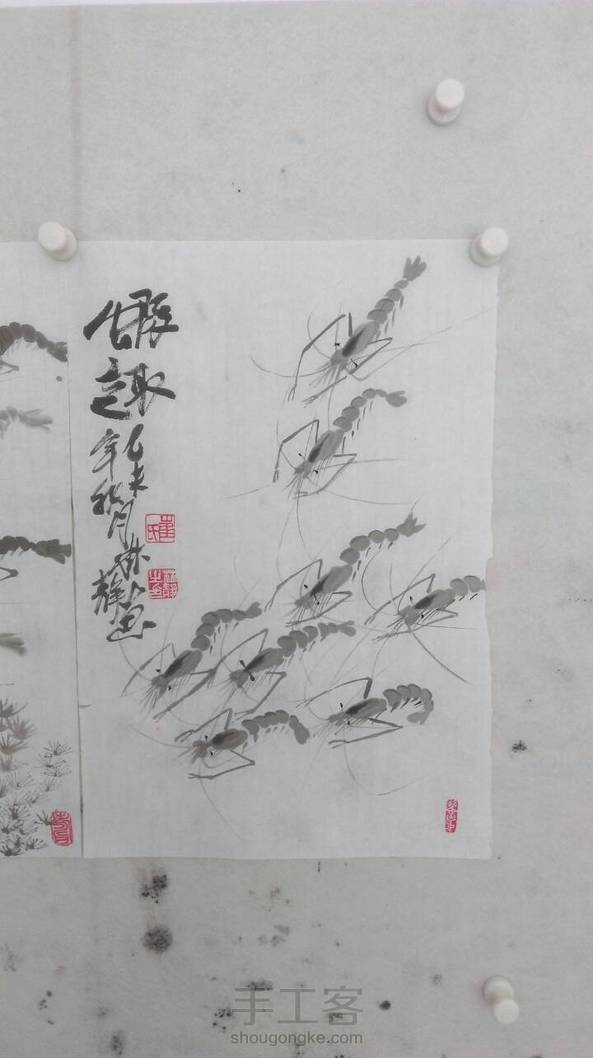 蝦趣
乙未年秋月林静画
手工客
shougongke.com